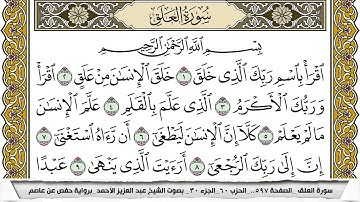 سُورَةُ العَلَقِ
بِسْمِ اللَّهِ الرَّحْمَٰنِ الرَّحِيمِ
اقْرَأْ بِاسْمِ رَبِّكَ الَّذِي خَلَقَ ١ خَلَقَ الْإِنسَانَ مِنْ عَلَقٍ ٢ اقْرَأْ
وَرَبُّكَ الْأَكْرَمُ ٣ الَّذِي عَلَّمَ بِالْقَلَمِ ٤ عَلَّمَ الْإِنسَانَ
مَا لَمْ يَعْلَمْ ٥ كَلَّا إِنَّ الْإِنسَانَ لَيَطْغَىٰ ٦ أَن رَّآهُ اسْتَغْنَىٰ ٧
إِنَّ إِلَىٰ رَبِّكَ الرُّجْعَىٰ ٨ أَرَأَيْتَ الَّذِي يَنْهَىٰ ٩ عَبْدًا
سورة العلق _الصفحة ٥٩٧_ الحزب ٦٠_الجزء ٣٠_ بصوت الشيخ عبد العزيز الاحمد_ برواية حفص عن عاصم